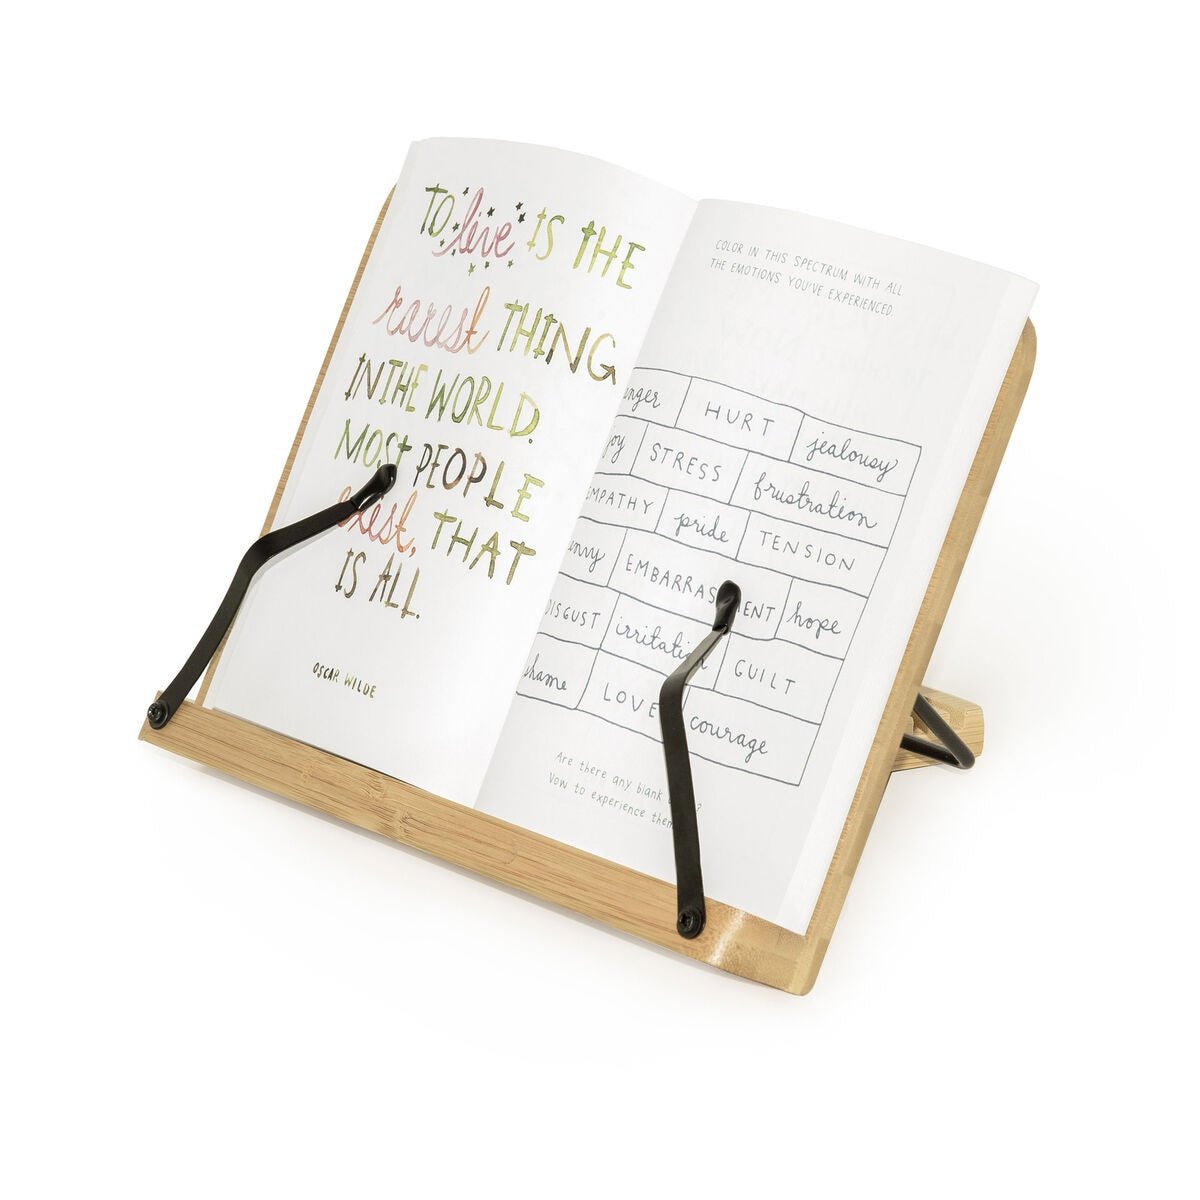 TO live IS THE
rarest THING
IN THE WORLD.
MOST PEOPLE
exist, THAT
IS ALL.
OSCAR WILDE
COLOR IN THIS SPECTRUM WITH ALL
THE EMOTIONS YOU'VE EXPERIENCED.
nger HURT jealousy
oy STRESS frustration
EMPATHY pride TENSION
envy EMBARRAS ENT hope
DISGUST irritati GUILT
shame LOVE courage
Are there any blank ?
Vow to experience them